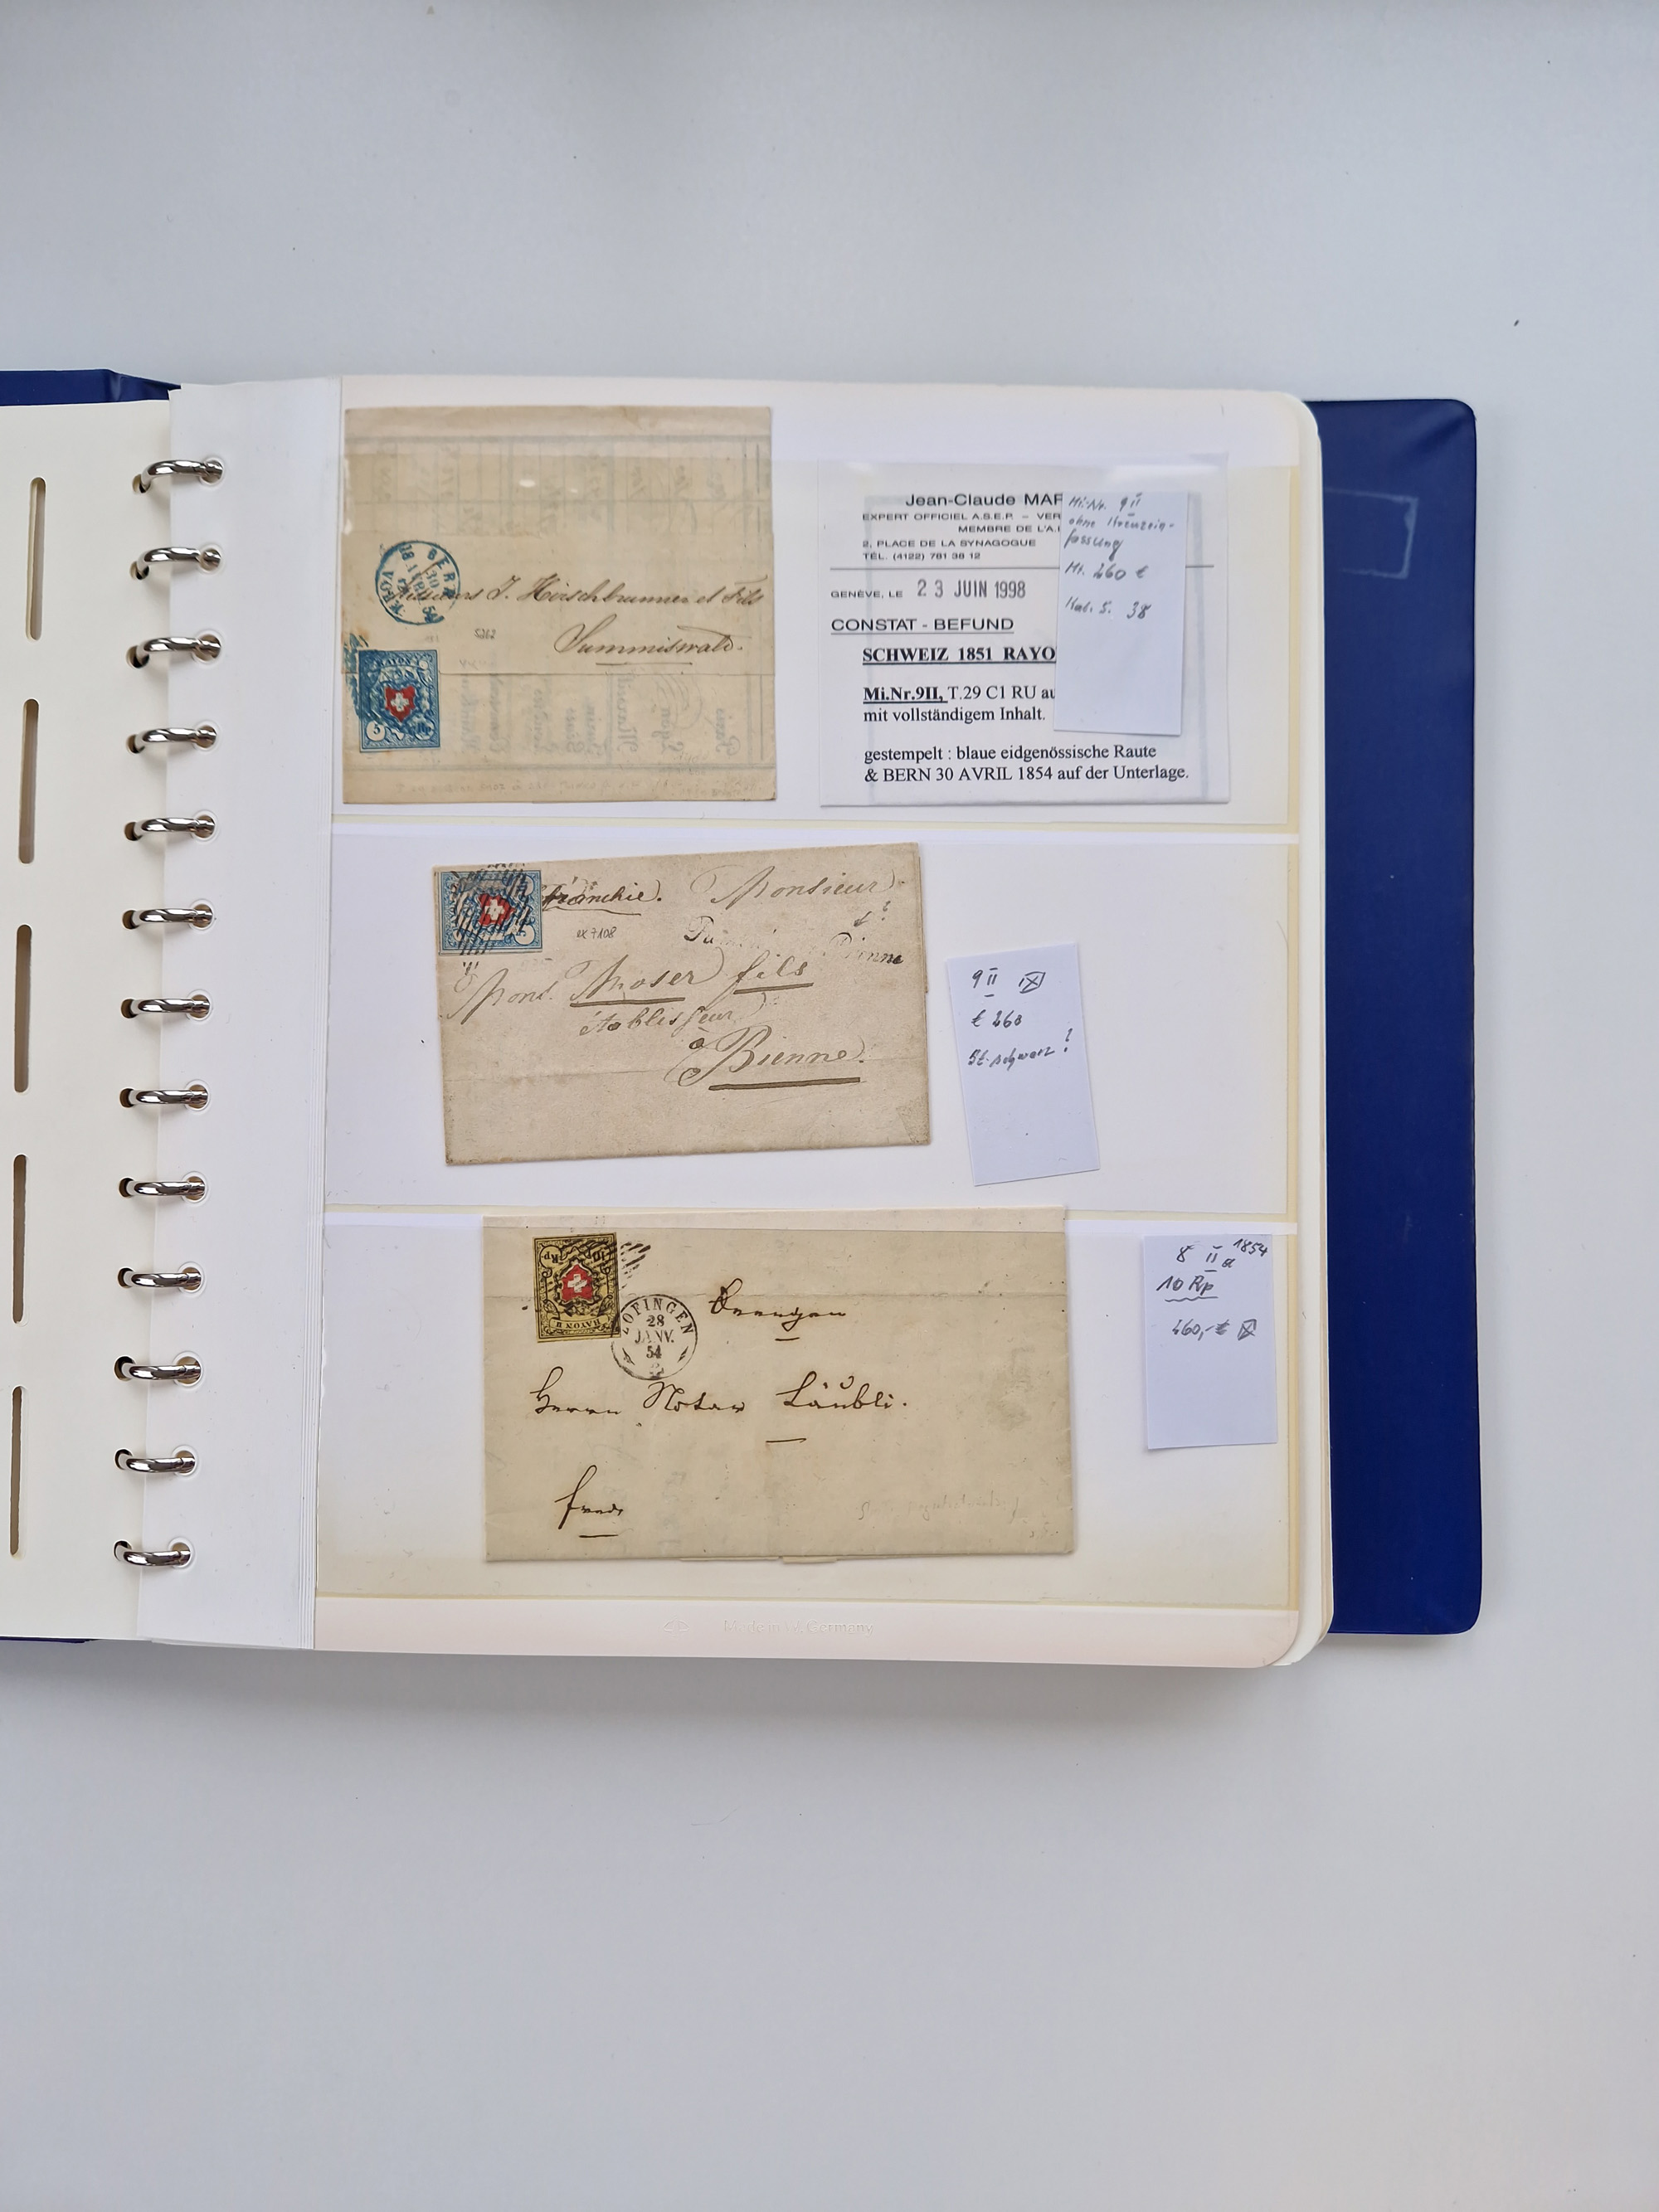 BERN
30
AVRIL
54
J. Hirschbrunner et Fils
Summiswald.
RAYON I
5
Jean-Claude MAR
EXPERT OFFICIEL A.S.E.P. – VER
MEMBRE DE L'A.I
2, PLACE DE LA SYNAGOGUE
TÉL. (4122) 781 38 12
GENÈVE, LE 23 JUIN 1998
CONSTAT - BEFUND
SCHWEIZ 1851 RAYO
Mi.Nr.9II, T.29 C1 RU au
mit vollständigem Inhalt.
gestempelt : blaue eidgenössische Raute
& BERN 30 AVRIL 1854 auf der Unterlage.
Mi.-Nr. 9 II
ohne Kreuzein-
fassung
Mi. 260 €
Kat. S. 38
franchie. Monsieur
ex 7108
Mons. Moser fils
établisseur
à Bienne.
9 II
€ 260
St. schwarz?
RAYON II
10 Rp
ZOFINGEN
28
JANV.
54
Herrn Notar Läubli.
franco
8 II a 1854
10 Rp
160,- €
Made in W. Germany